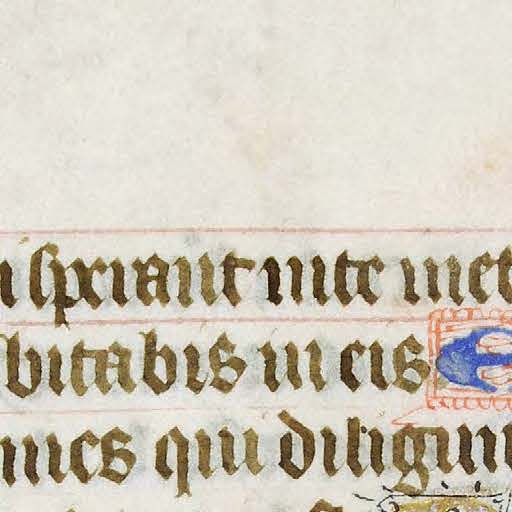 i sperant in te in et
bitabis in eis E
mnes qui diligun